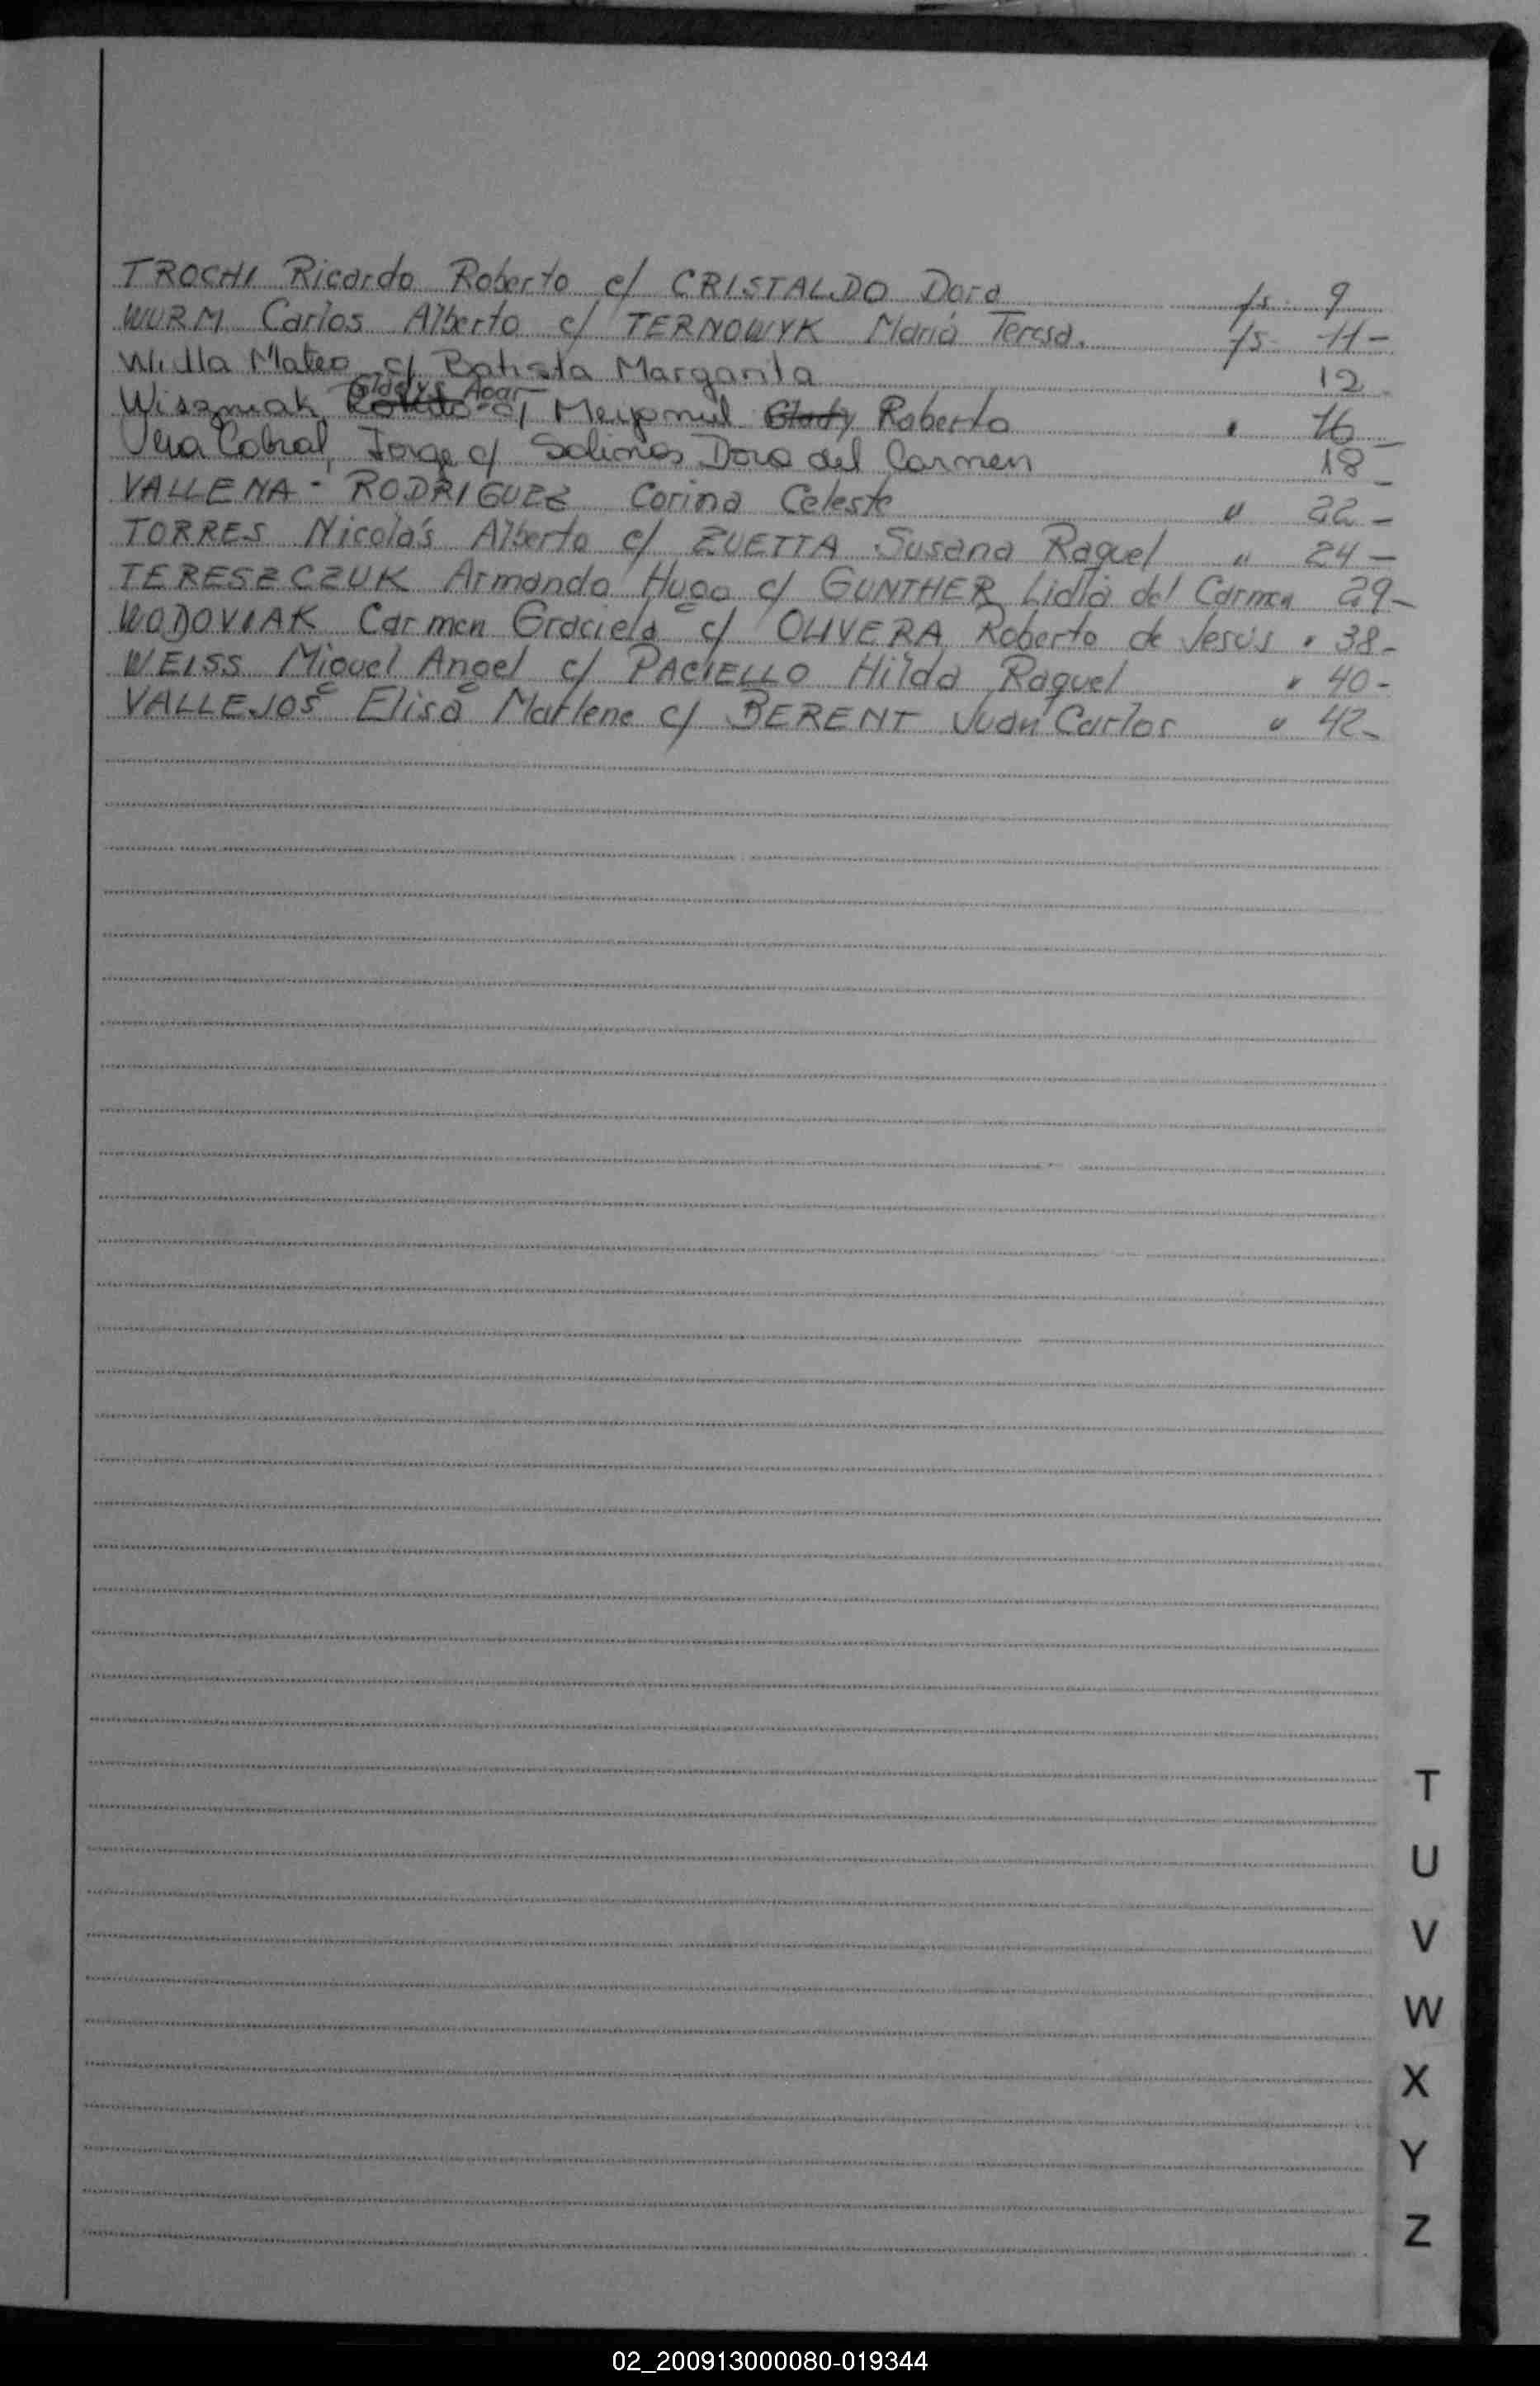 TROCHI Ricardo Roberto c/ CRISTALDO Dora fs. 9
WURM Carlos Alberto c/ TERNOWYK María Teresa. fs 11-
Mateo c/ Batista Margarita 12
Gladys Agar
Wiszniak Roberto c/ Glady Roberto " 16-
Vera Cabral, Jorge c/ Salinas Dora del Carmen 18-
VALLENA - RODRIGUEZ Corina Celeste " 22-
TORRES Nicolás Alberto c/ ZUETTA Susana Raquel " 24-
TERESZCZUK Armando Hugo c/ GUNTHER Lidia del Carmen 29-
WODOVIAK Carmen Graciela c/ OLIVERA Roberto de Jesús " 38-
WEISS Miguel Angel c/ PACIELLO Hilda Raquel " 40-
VALLEJOS Elisa Marlene c/ BERENT Juan Carlos " 42-
T
U
V
W
X
Y
Z
02_200913000080-019344